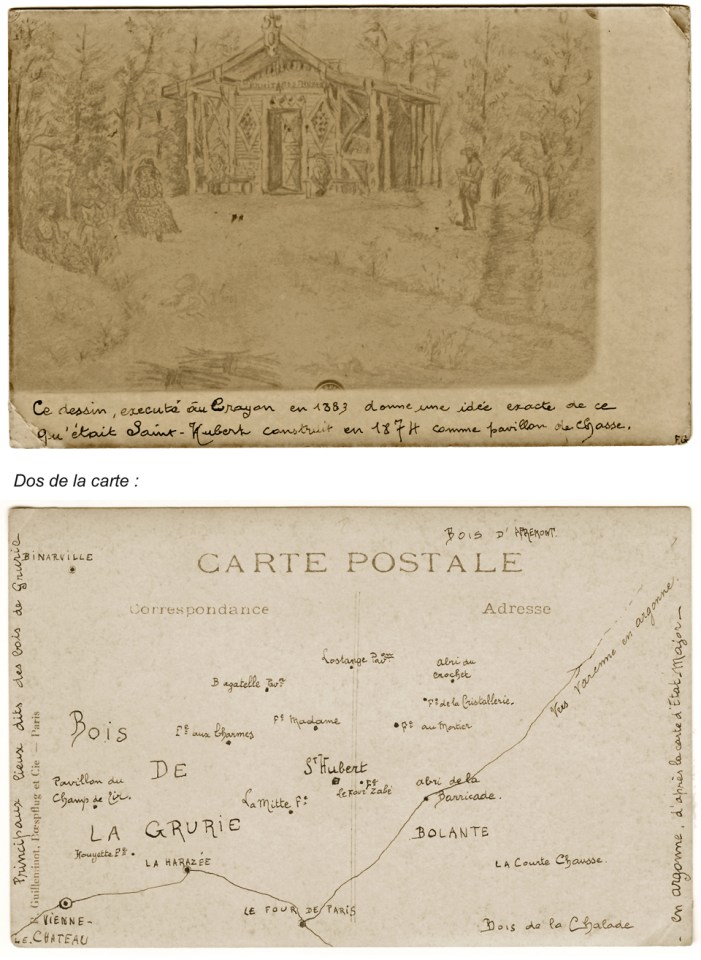 Ce dessin, executé au Crayon en 1883 donne une idée exacte de ce
qu'était Saint-Hubert construit en 1874 comme pavillon de Chasse.
Dos de la carte :
BOIS D'APREMONT.
BINARVILLE
CARTE POSTALE
Correspondance
Adresse
Principaux lieux dits des bois de Grurie
Guilleminot, Bœspflug et Cie — Paris
Vers Varenne en argonne.
en argonne, d'après la carte d'État-Major —
Lostange Pavon
abri du
crochet
Bagatelle Pavon
Fe de la Cristallerie.
BOIS
Fe aux Charmes
Fe Madame
Fe au Mortier
DE
St Hubert
Pavillon du
Champ de Tir.
Fe
le Four Zabé
abri de la
Barricade.
La Mitte Fe
LA GRURIE
BOLANTE
Houyette Fe
LA HARAZÉE
LA Courte Chausse.
LE FOUR DE PARIS
VIENNE-
LE-CHATEAU
Bois de la Chalade